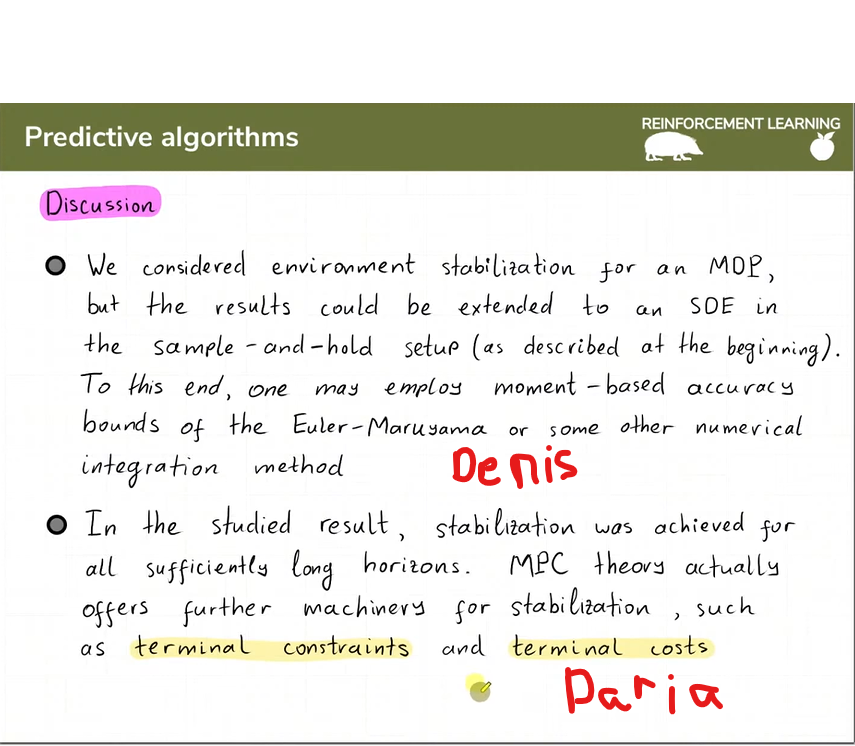 REINFORCEMENT LEARNING
Predictive algorithms
Discussion
We considered environment stabilization for an MDP,
but the results could be extended to an SDE in
the sample-and-hold setup (as described at the beginning).
To this end, one may employ moment-based accuracy
bounds of the Euler-Maruyama or some other numerical
integration method
Denis
In the studied result, stabilization was achieved for
all sufficiently long horizons. MPC theory actually
offers further machinery for stabilization, such
as terminal constraints and terminal costs
Daria